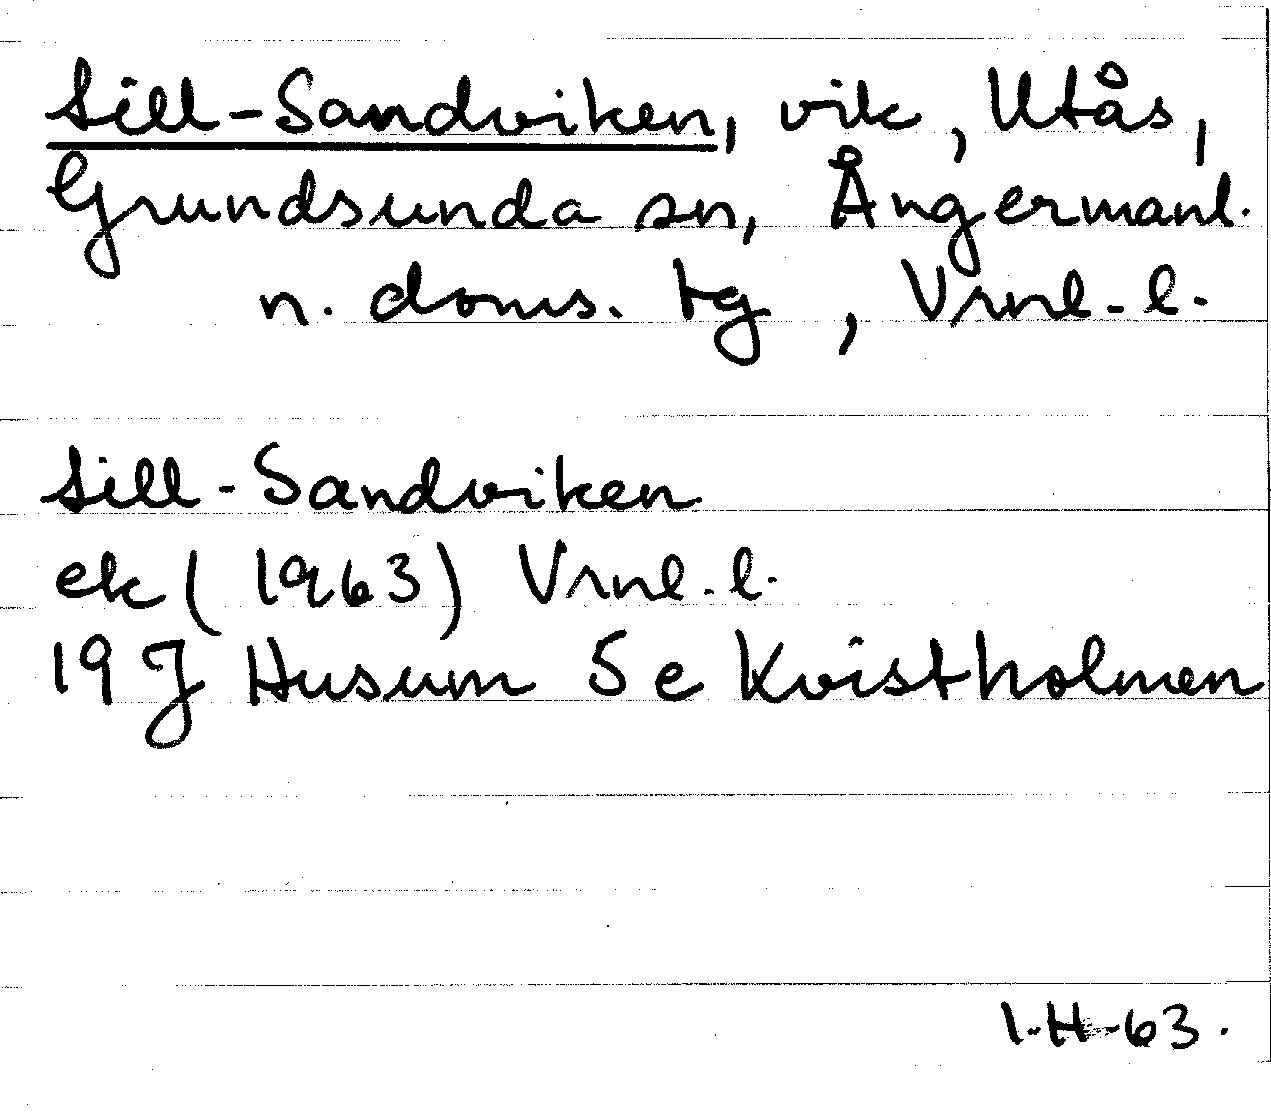 Sill-Sandviken, vik, Utås,
Grundsunda sn, Ångermanl.
n. doms. tg, Vrnl.-l.
Sill-Sandviken
ek (1963) Vrnl.-l.
19 J Husum 5 e Kvistholmen
I.H-63.